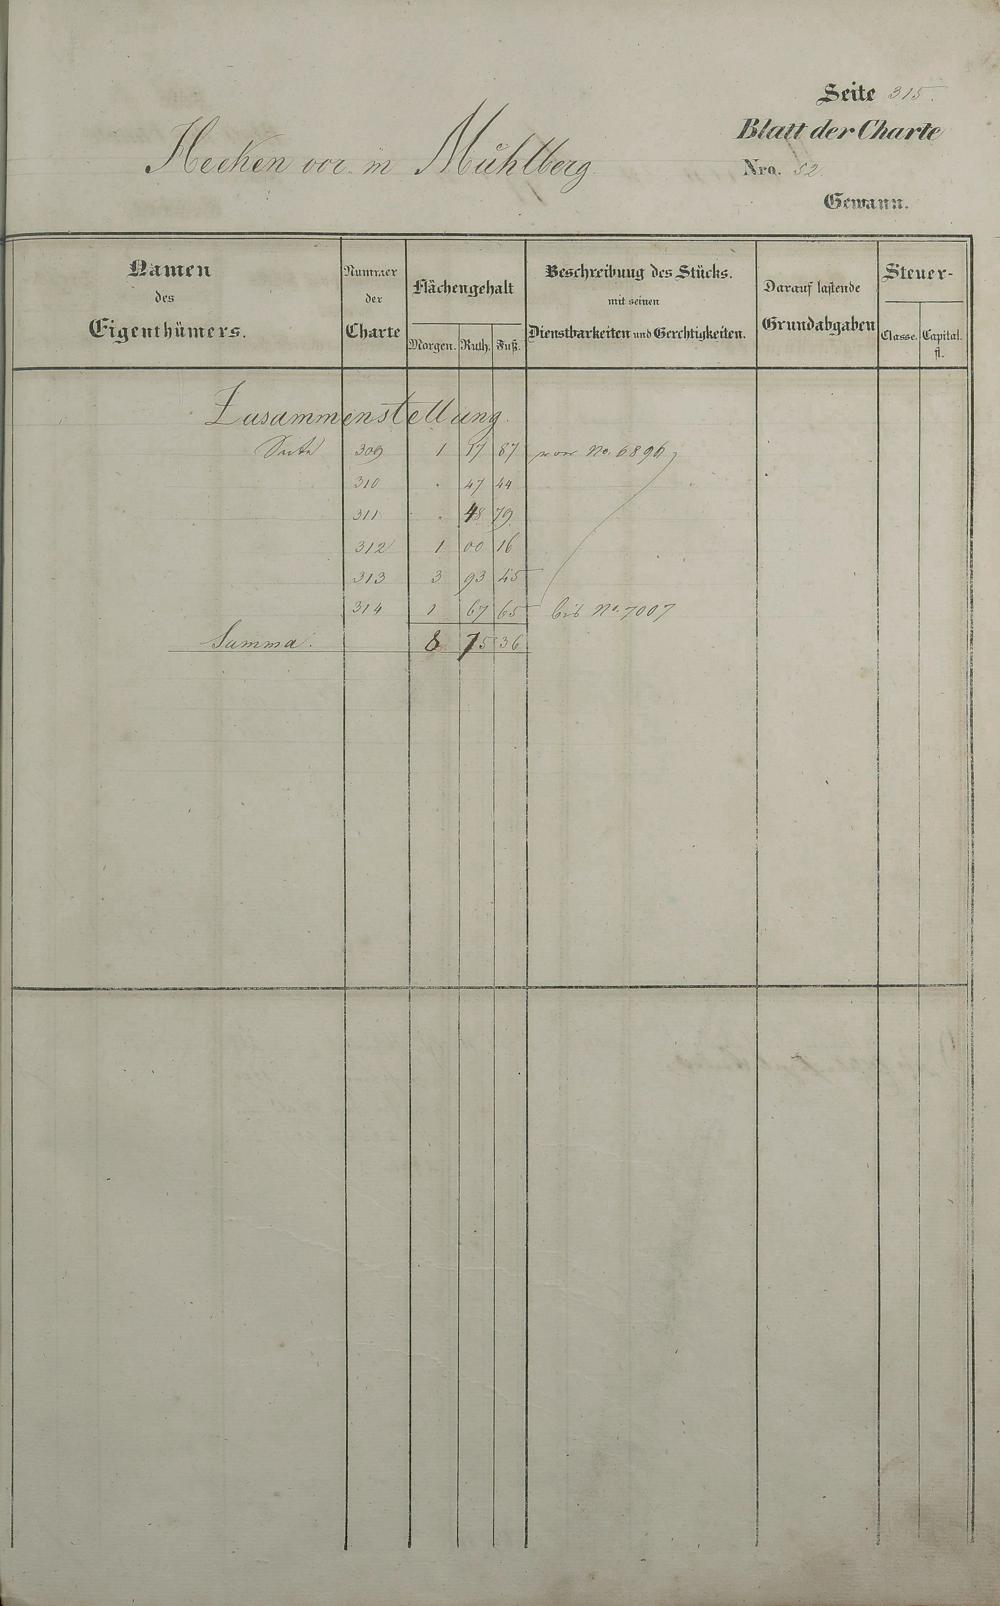 Seite 315.
Blatt der Charte
Hecken vor. m Mühlberg.
Nro. 52.
Gewann.
Namen des Eigenthümers. Nummer der Charte Flächengehalt Morgen. Ruth. Fuß. Beschreibung des Stücks. mit seinen Dienstbarkeiten und Gerechtigkeiten. Darauf lastende Grundabgaben Steuer- Classe. Capital. fl.
Zusammenstellung.
Seite 309 1 17 87 von No. 6896
310 . 47 44
311 . 48 79
312 1 00 16
313 3 93 45
314 1 67 65 bis No. 7007
Summa. 8 75 36